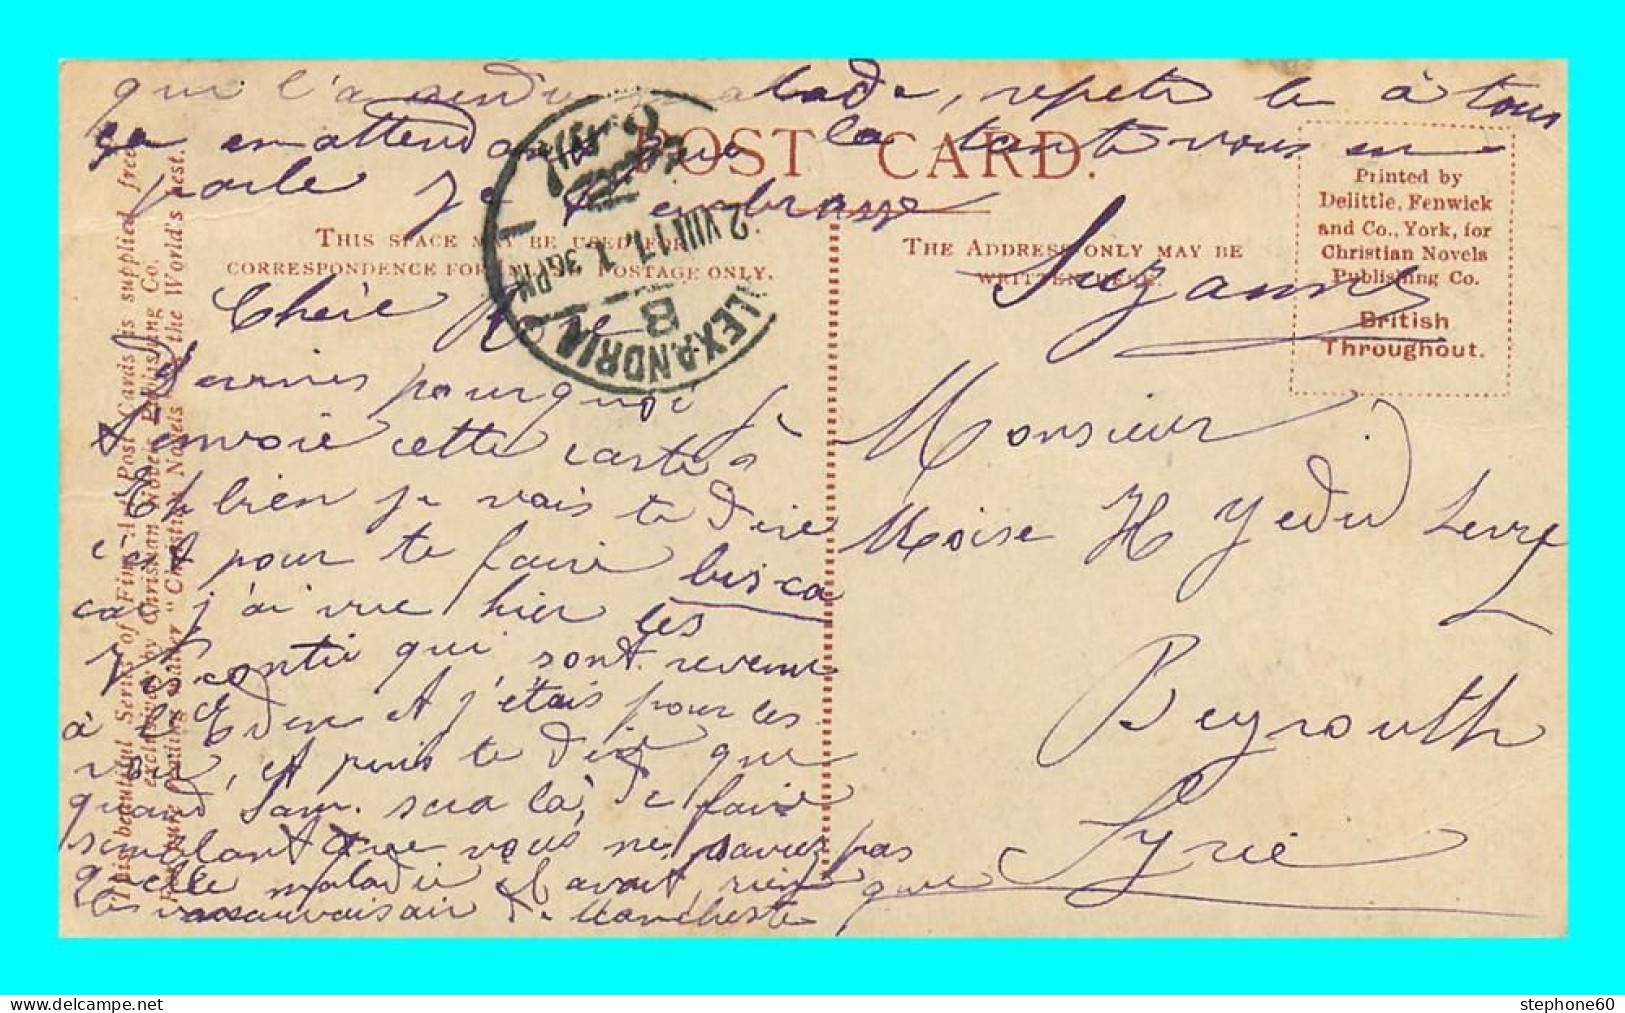 qui l'a rendu malade, repete le à tous
ça en attendant que la tante vous en
parle Je t'embrasse
Suzanne
POST CARD.
THIS SPACE MAY BE USED FOR
CORRESPONDENCE FOR INLAND POSTAGE ONLY.
THE ADDRESS ONLY MAY BE
WRITTEN HERE.
Printed by
Delittle, Fenwick
and Co., York, for
Christian Novels
Publishing Co.
British
Throughout.
ALEXANDRIA
B
2 VIII 11. 1 36 PM
Chère
Devines pourquoi je
t'envoie cette carte
Eh bien je vais te dire
c'est pour te faire bis-ca
car j'ai vue hier les
Viscontie qui sont revenu
à l'Eden et j'étais pour les
voir, et puis te dire que
quand Sam. sera là, de faire
semblant que vous ne saviez pas
quelle maladie il avait, rien que
le mauvais air de Manchester
Monsieur
Moïse H Yedid Levy
Beyrouth
Syrie
This beautiful Series of Fine Art Post Cards is supplied free
exclusively by Christian Novels Publishing Co.
Picture reading matter "Christian Novels" is the World's best.
stephone60